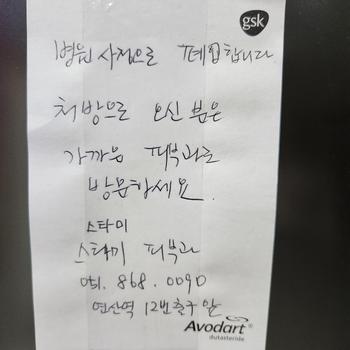 gsk
병원 사정으로 폐업합니다
처방으로 오신 분은
가까운 피부과로
방문하세요.
스타미
스타미 피부과
051. 868. 0090
연산역 12번출구 앞
Avodart®
dutasteride